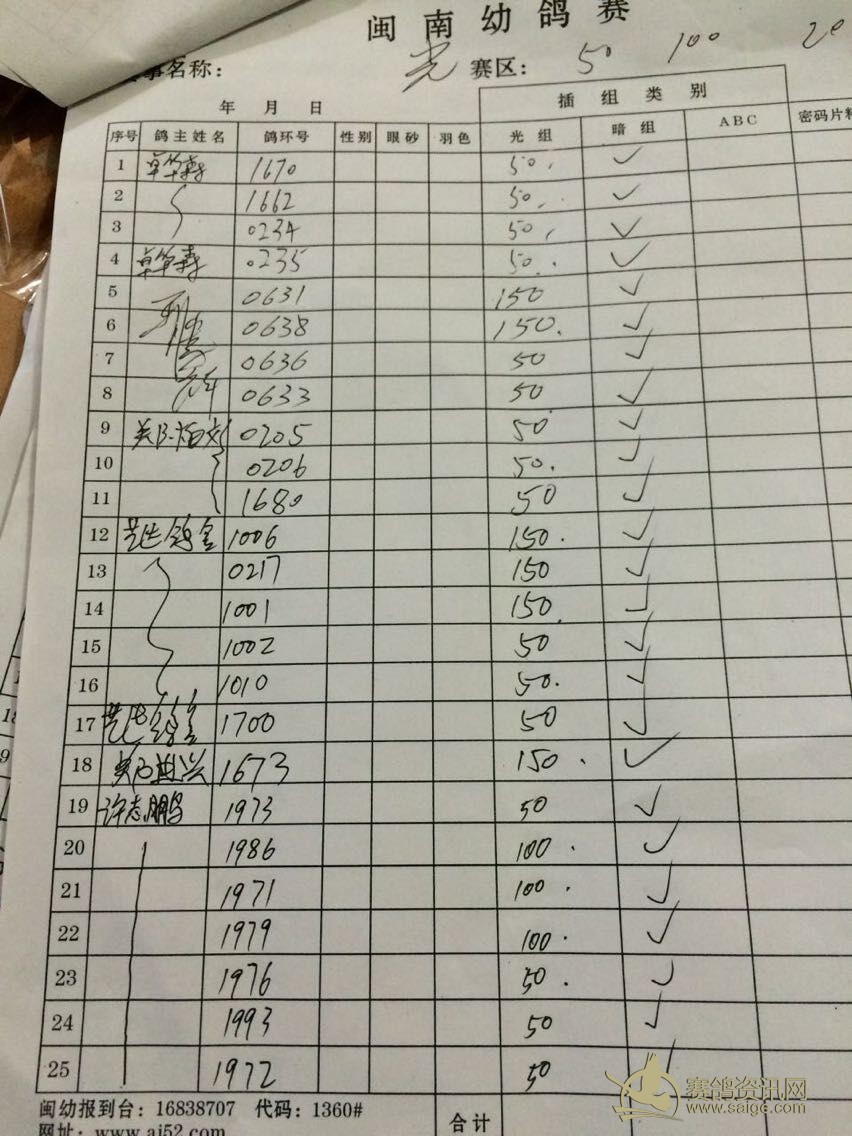 闽南幼鸽赛
赛事名称： 光 赛区： 50 100 20
年 月 日 插组类别
序号 鸽主姓名 鸽环号 性别 眼砂 羽色 光组 暗组 ABC 密码片
1 1670 50. ✓
2 1662 50. ✓
3 0234 50. ✓
4 0235 50. ✓
5 0631 150 ✓
6 0638 150. ✓
7 0636 50 ✓
8 0633 50 ✓
9 0205 50 ✓
10 0206 50. ✓
11 1680 50 ✓
12 1006 150. ✓
13 0217 150 ✓
14 1001 150 ✓
15 1002 50 ✓
16 1010 50. ✓
17 1700 50 ✓
18 1673 150. ✓
19 许志鹏 1973 50 ✓
20 1986 100. ✓
21 1971 100. ✓
22 1979 100. ✓
23 1976 50. ✓
24 1993 50 ✓
25 1972 50 ✓
闽幼报到台：16838707 代码：1360# 合计
网址：www.aj52.com
赛鸽资讯网
www.saige.com